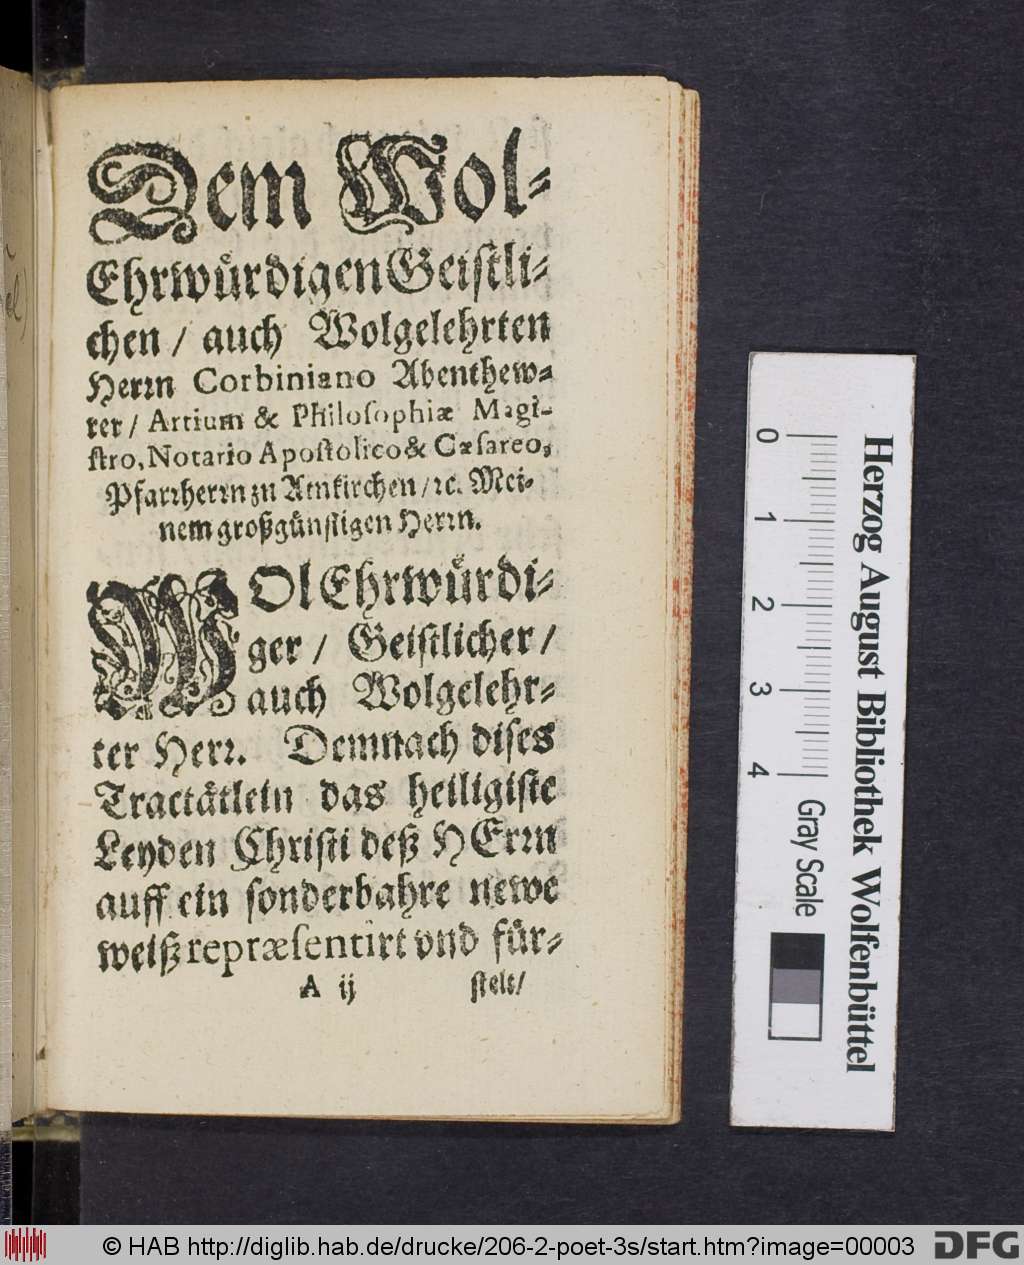 Dem Wol-
Ehrwürdigen Geistli-
chen / auch Wolgelehrten
Herrn Corbiniano Abenthew-
rer / Artium & Philosophiæ Magi-
stro, Notario Apostolico & Cæsareo,
Pfarrherrn zu Amkirchen / ꝛc. Mei-
nem großgünstigen Herrn.
WOl Ehrwürdi-
ger / Geistlicher /
auch Wolgelehr-
ter Herr. Demnach dises
Tractätlein das heiligiste
Leyden Christi deß HErrn
auff ein sonderbahre newe
weiß repræsentirt vnd für-
A ij stelt /
0 1 2 3 4
Gray Scale
Herzog August Bibliothek Wolfenbüttel
© HAB http://diglib.hab.de/drucke/206-2-poet-3s/start.htm?image=00003
DFG